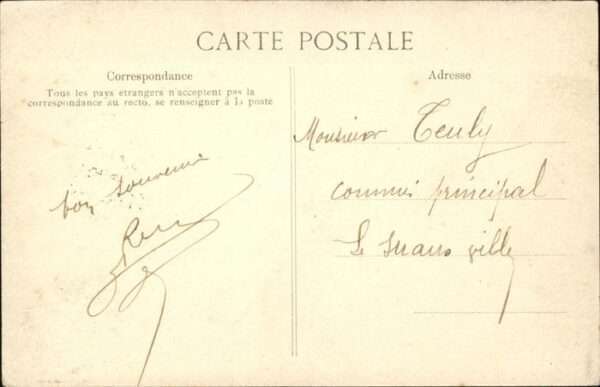 CARTE POSTALE
Correspondance
Tous les pays etrangers n'acceptent pas la
correspondance au recto, se renseigner à la poste
bon souvenir
Adresse
Monsieur Teuly
commis principal
Le Mans ville